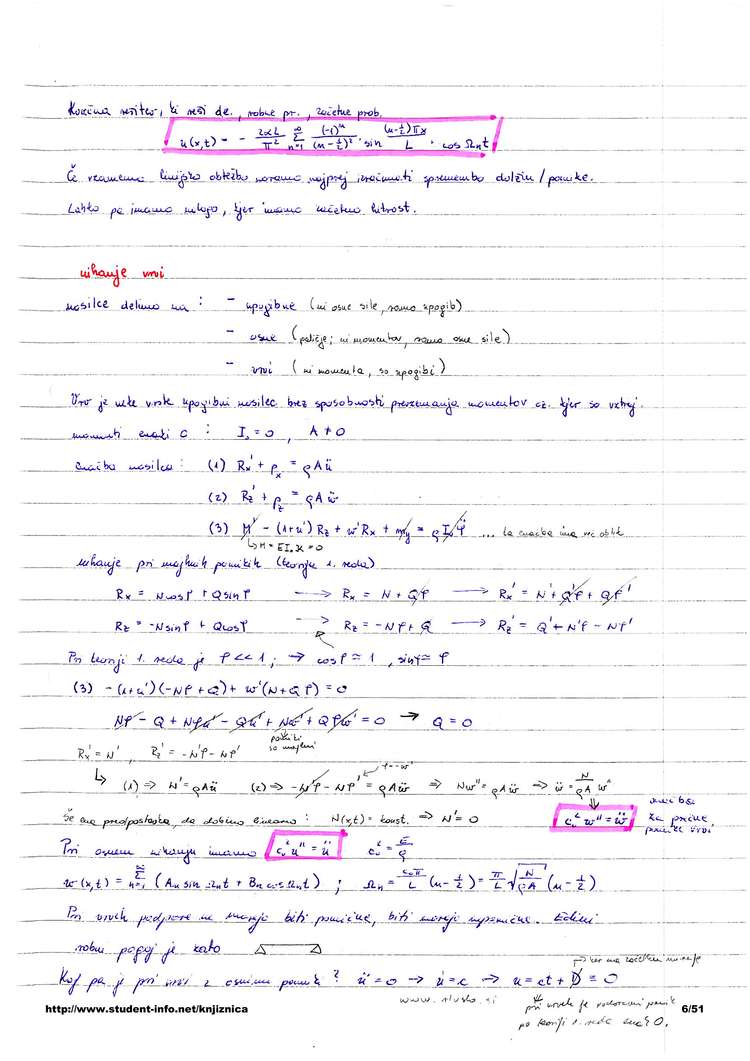 Končna rešitev, ki reši de., robne pr., začetne prob.
u(x,t) = - 2αL/π² ∑_{n=1}^{∞} (-1)^n/(n-½)² · sin (n-½)πx/L · cos Ω_n t
Če vzamemo linijsko obtežbo moramo najprej izračunati spremembo dolžin/pomike.
Lahko pa imamo nalogo, kjer imamo začetno hitrost.
nihanje vrvi
nosilce delimo na : - upogibne (ni osne sile, samo upogib)
- osne (paličje; ni momentov, samo osne sile)
- vrvi (ni momenta, so upogibi)
Vrv je neke vrste upogibni nosilec brez sposobnosti prevzemanja momentov oz. kjer so vztraj.
momenti enaki 0 : I_o = 0 , A ≠ 0
enačba nosilca : (1) Rx' + px = ρAü
(2) Rz' + pz = ρAẅ
(3) M' - (1+u')Rz + w'Rx + my = ρI_oφ̈ ... ta enačba ima več oblik
↳ M = EI_oϰ = 0
nihanje pri majhnih pomikih (teorija 1. reda)
Rx = Ncosφ + Qsinφ → Rx = N + Qφ → Rx' = N' + Q'φ + Qφ'
Rz = -Nsinφ + Qcosφ → Rz = -Nφ + Q → Rz' = Q' + N'φ - Nφ'
Pri teoriji 1. reda je φ << 1 ; → cosφ ≃ 1 , sinφ ≃ φ
(3) -(1+u')(-Nφ + Q) + w'(N + Qφ) = 0
Nφ - Q + Nφu' - Qu' + Nw' + Qφw' = 0 → Q = 0
pomiki so majhni
Rx' = N' , Rz' = -N'φ - Nφ'
φ = -w'
↳ (1) ⇒ N' = ρAü (2) ⇒ -N'φ - Nφ' = ρAẅ ⇒ Nw'' = ρAẅ ⇒ ẅ = N/ρA w''
Še ena predpostavka, da dobimo linearno : N(x,t) = konst. ⇒ N' = 0 c_v² w'' = ẅ enačba za prečne pomike vrvi
Pri osnem nihanju imamo c_u² u'' = ü c_u² = E/ρ
w(x,t) = ∑_{n=1}^{∞} (A_n sin Ω_n t + B_n cos Ω_n t) ; Ω_n = c_v π/L (n-½) = π/L √(N/ρA) (n-½)
Pri vrveh podpore ne morejo biti pomične, biti morajo nepomične. Edini
robni pogoj je zato
Kaj pa je pri vrvi z osnimi pomiki ? ü = 0 → u̇ = c → u = ct + D = 0
→ ker ima začetku miruje
pri vrveh je vodoravni pomik
po teoriji 1. reda enak 0.
http://www.student-info.net/knjiznica
6/51